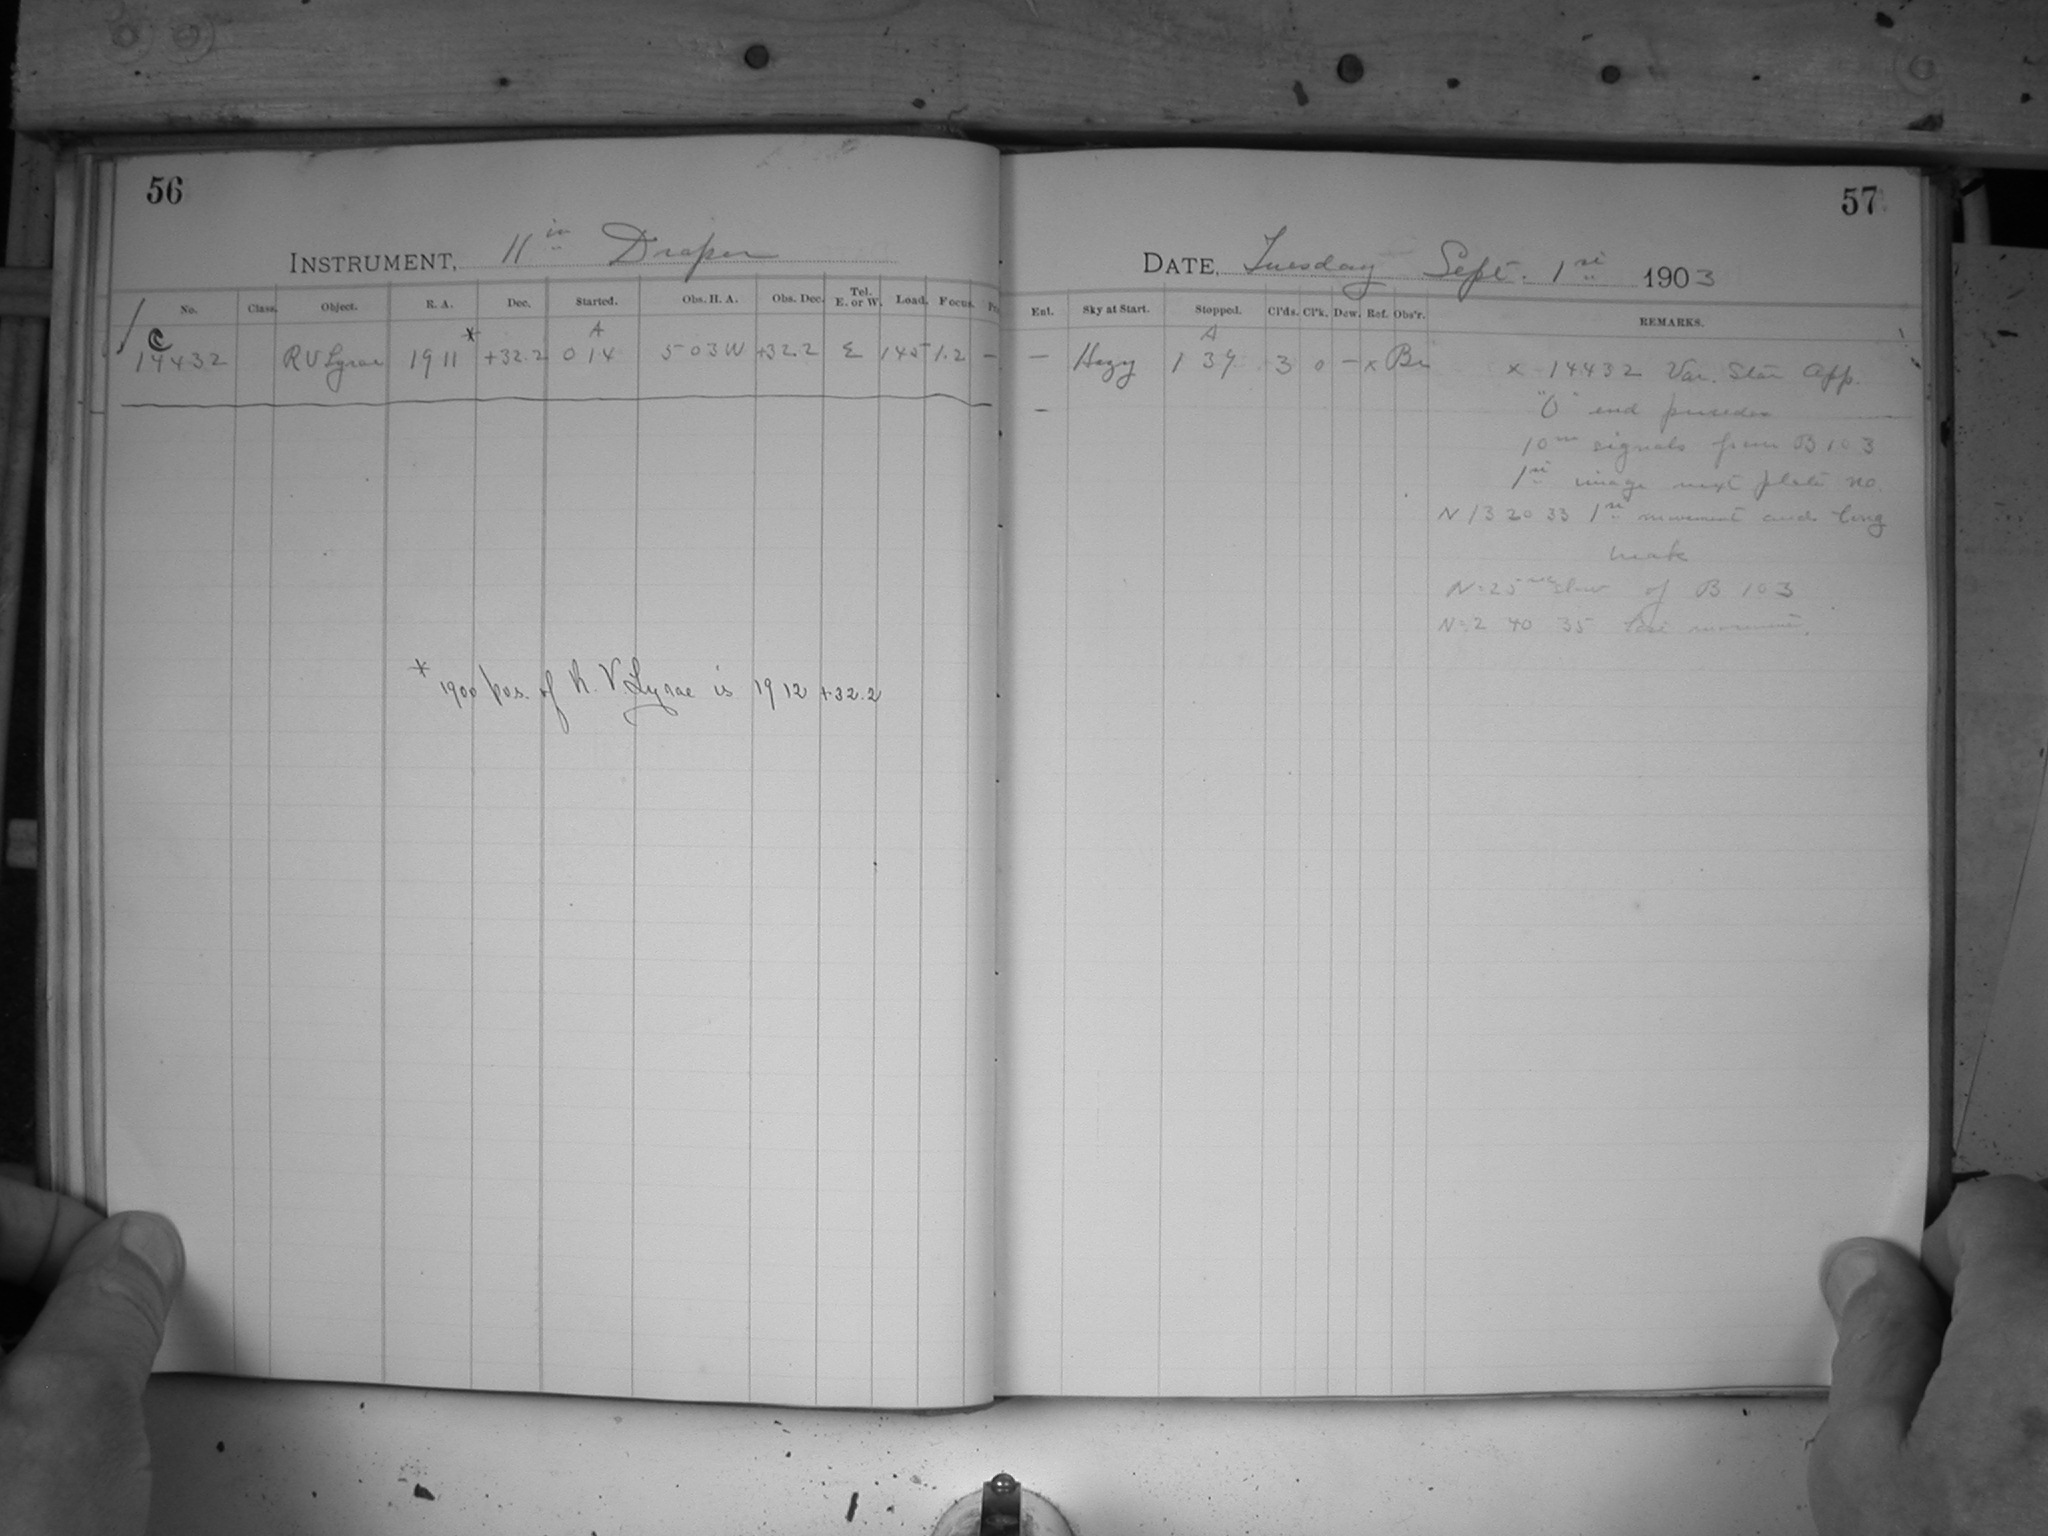 56
INSTRUMENT, 11 in Draper
No. Class. Object. R. A. Dec. Started. Obs. H. A. Obs. Dec. Tel. E. or W. Load. Focus.
C A
14432 RV Lyrae 19 11 * +32.2 0 14 5 03 W +32.2 E 145 1.2 —
* 1900 pos. of R. V. Lyrae is 19 12 +32.2
57
DATE, Tuesday Sept. 1st 1903
Ent. Sky at Start. Stopped. Cl'ds. Cl'k. Dew. Ref. Obs'r. REMARKS.
A
— Hazy 1 37 3 0 — x Br x 14432 Var. Star App.
— "O" end precedes
10m signals from B 103
1st image next plate no.
N 13 20 33 1st movement and long
break
N = 25 slow of B 103
N = 2 40 35 last movement.